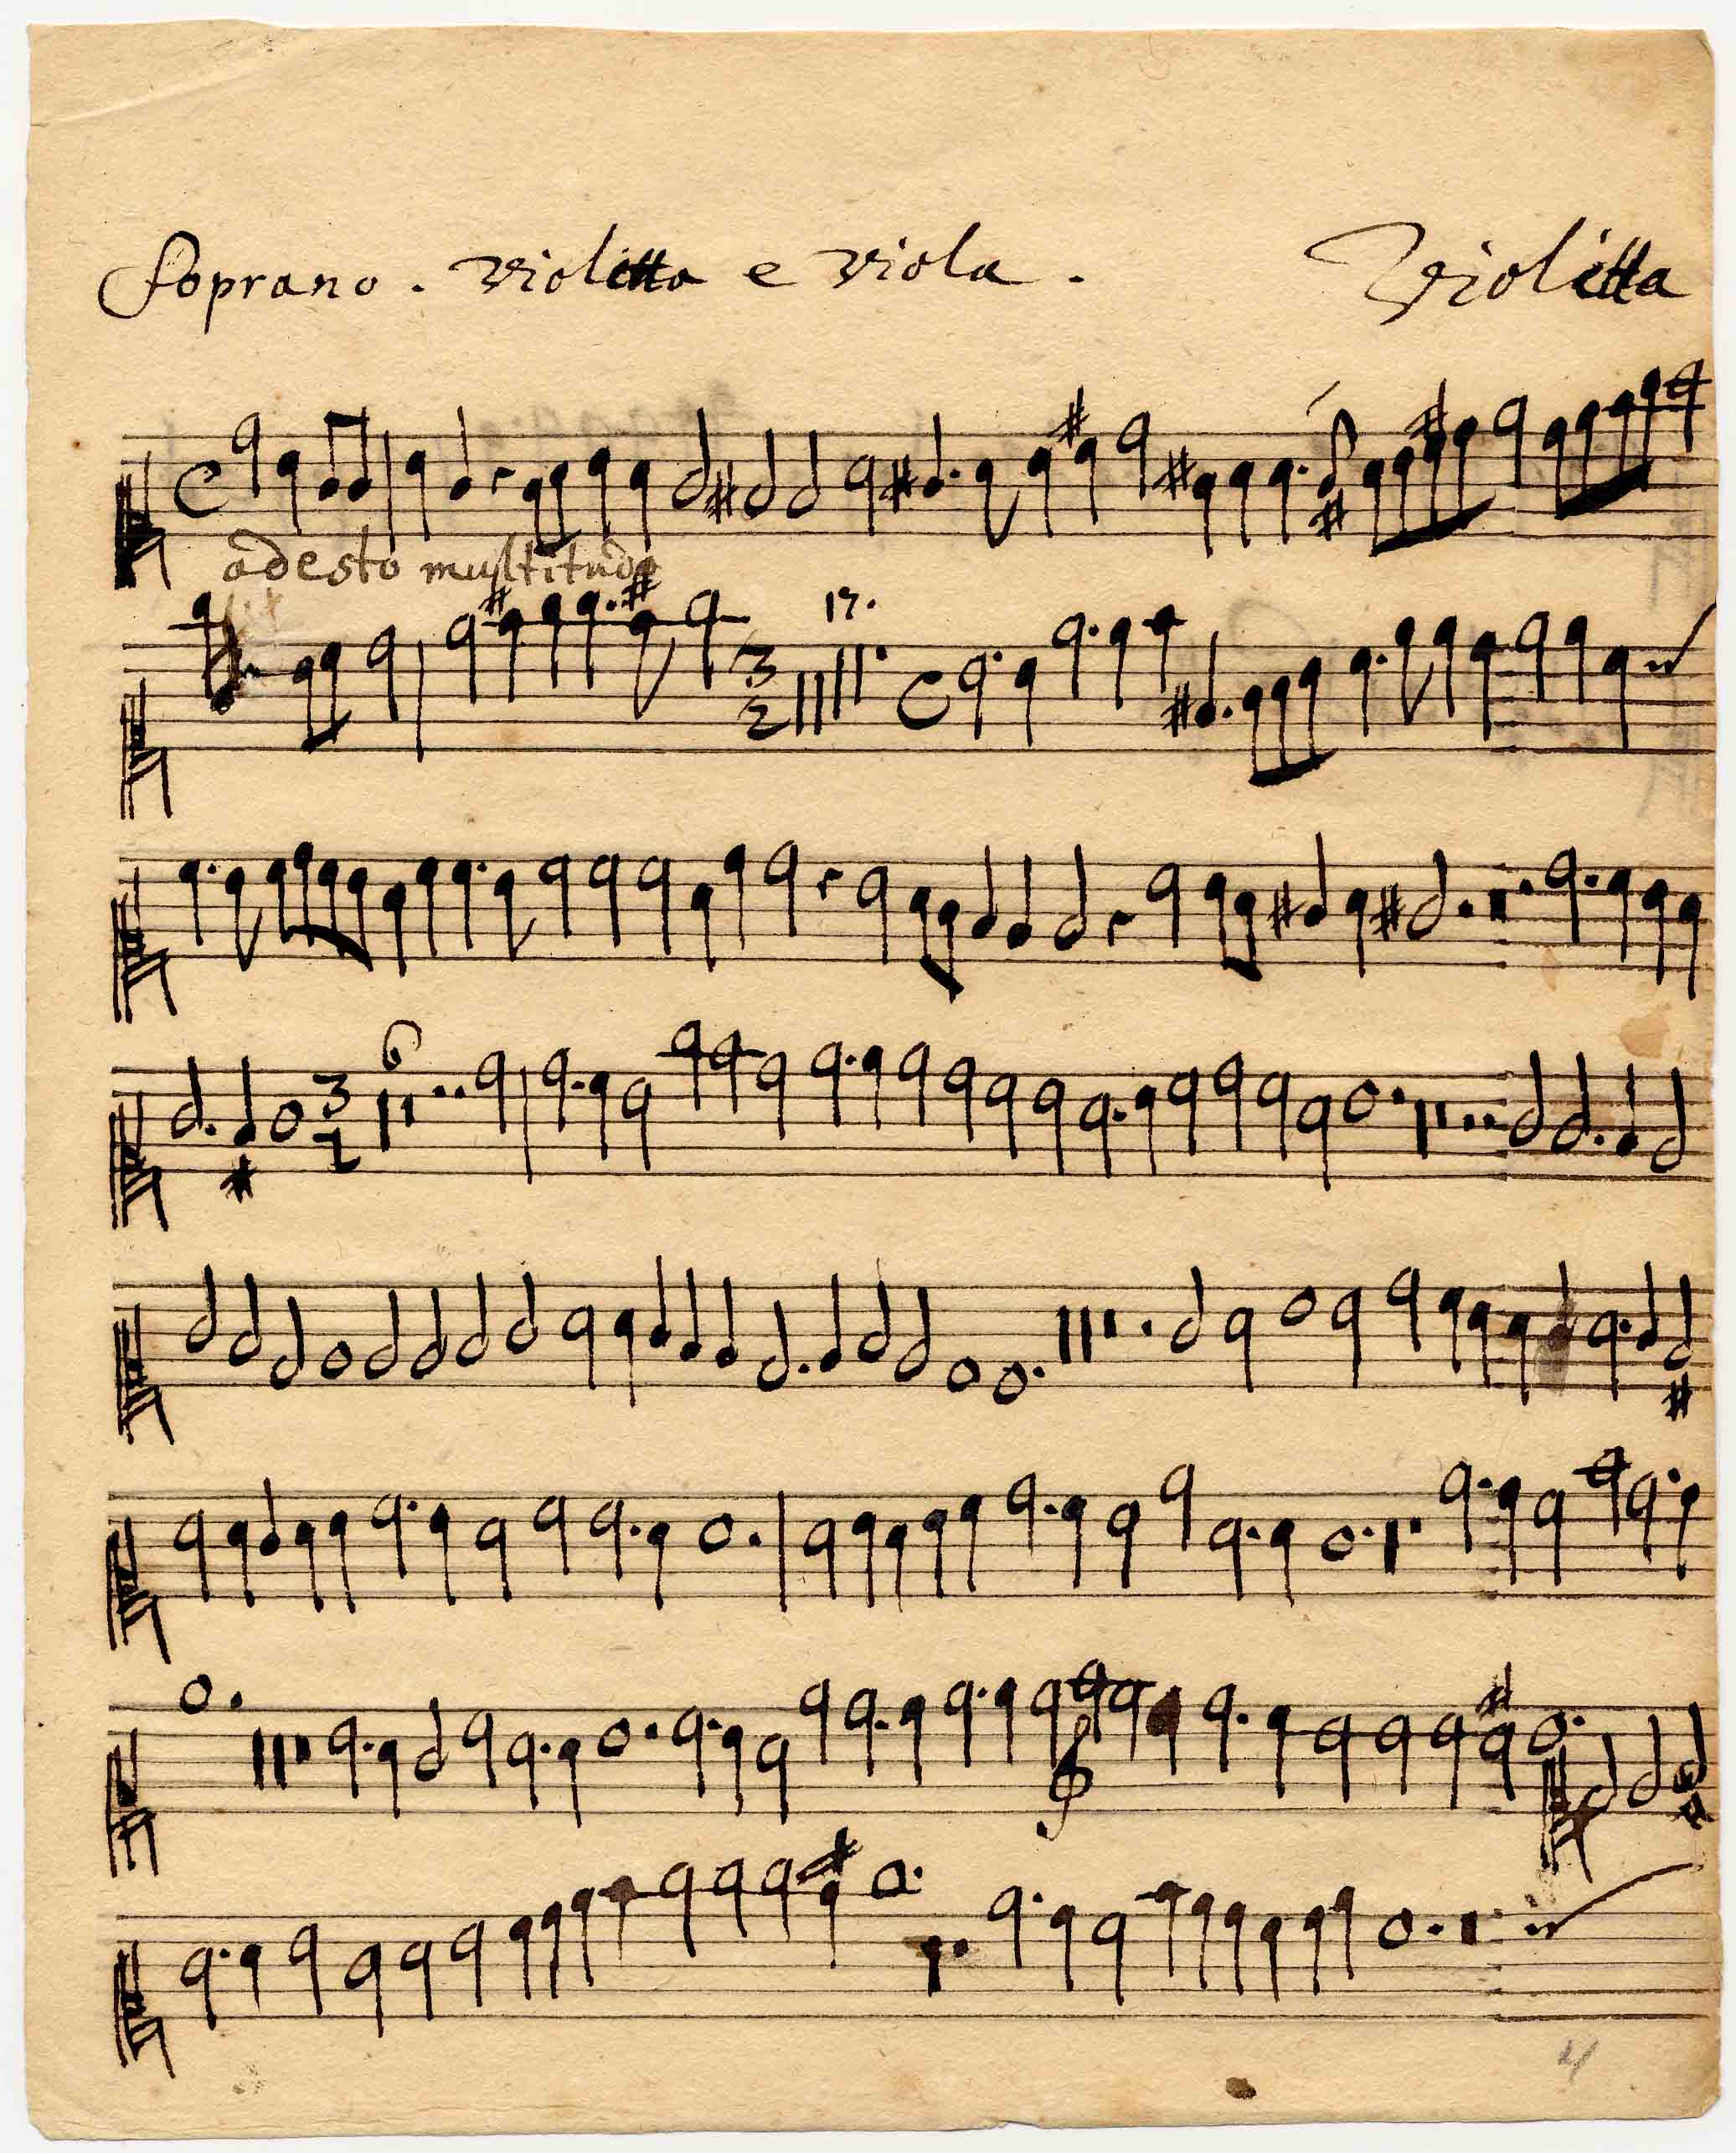 Soprano. Violetta e Viola. Violetta
C
adesto multitudo
3 2 17. C
6 3 1
4